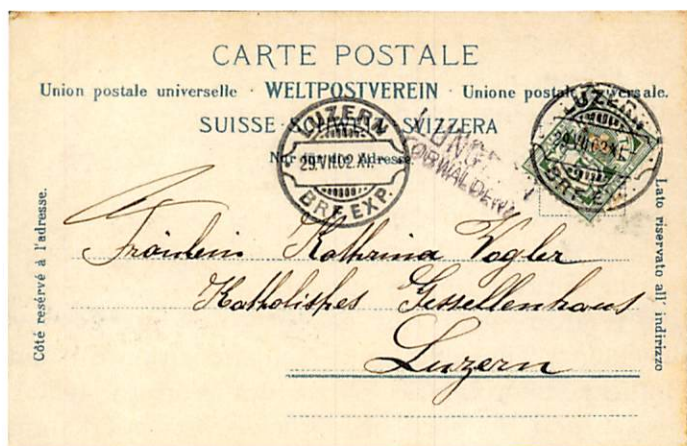 CARTE POSTALE
Union postale universelle · WELTPOSTVEREIN · Unione postale
SUISSE SVIZZERA
Nur für die Adresse.
LUZERN
29.VII.02.XI.
BRF. EXP.
LUNG
(OBWALDEN)
LUZERN
29.VII.02.XI.
BRF. E
Côté resérvé à l'adresse.
Lato riservato all' indirizzo
Fräulein Kathrina Vogler
Katholisches Gesellenhaus
Luzern